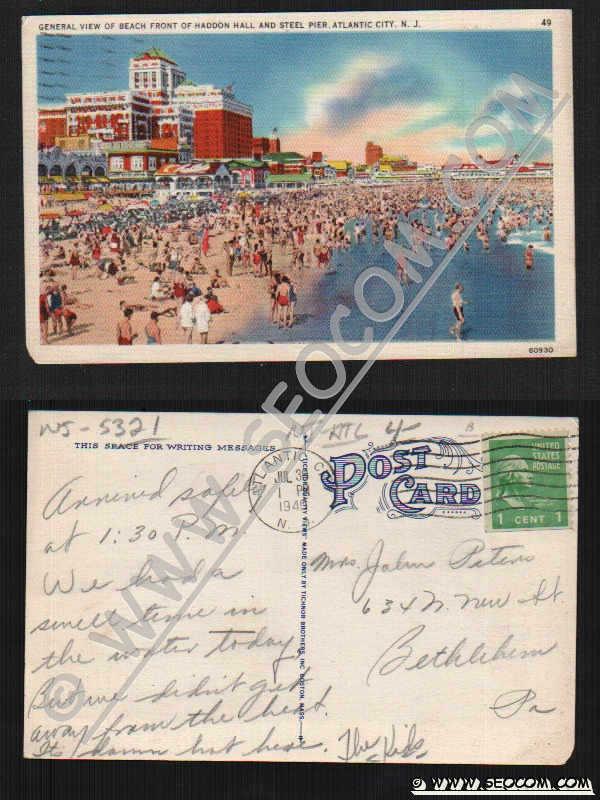 GENERAL VIEW OF BEACH FRONT OF HADDON HALL AND STEEL PIER, ATLANTIC CITY, N. J. 49
60930
NJ - 5321
ATL
B
THIS SPACE FOR WRITING MESSAGES
POST CARD
UNITED STATES POSTAGE
1 CENT 1
ATLANTIC CITY
JUL
1 PM
194
N. J.
Arrived safely
at 1:30 P.M.
We had a
swell time in
the water today,
But we didn't get
away from the heat.
Its damn hot here. The Kids
"QUALITY VIEWS" MADE ONLY BY TICHNOR BROTHERS, INC. BOSTON, MASS.
Mrs. John Peters
634 N. New St.
Bethlehem
Pa
© WWW.SEOCOM.COM
© WWW.SEOCOM.COM